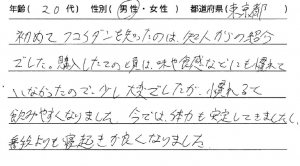 年齢( 20 代) 性別( 男性・女性 ) 都道府県( 東京都
初めてフコイダンを知ったのは、知人からの紹介
でした。購入したての頃は、味や食感などにも慣れて
いなかったので、少し大変でしたが、慣れると
飲みやすくなりました。今では、体力も安定してきましたし、
普段よりも寝起きが良くなりました。